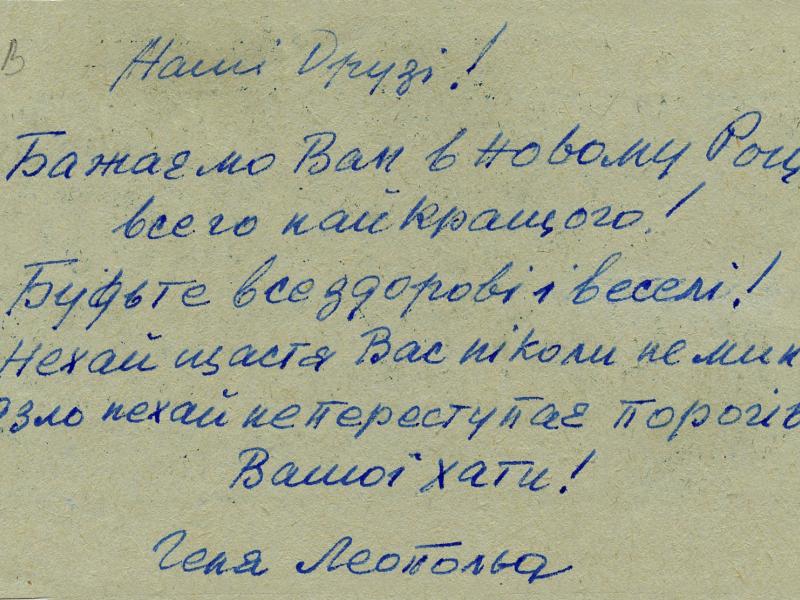 В
Наші Друзі!
Бажаємо Вам в Новому Роц
всего найкращого!
Будьте все здорові і веселі!
Нехай щастя Вас ніколи не мин
зло нехай не переступає порогів
Вашої хати!
Геня Леопольд